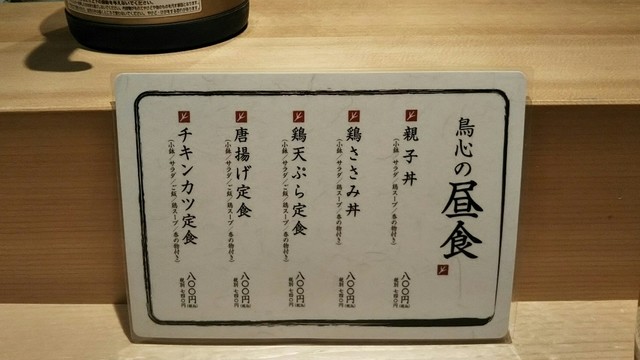 鳥心の昼食
親子丼
(小鉢/サラダ/鶏スープ/香の物付き)
八〇〇円(税込)
鶏ささみ丼
(小鉢/サラダ/鶏スープ/香の物付き)
八〇〇円(税込)
鶏天ぷら定食
(小鉢/サラダ/ご飯/鶏スープ/香の物付き)
八〇〇円(税込)
唐揚げ定食
(小鉢/サラダ/ご飯/鶏スープ/香の物付き)
八〇〇円(税込)
チキンカツ定食
(小鉢/サラダ/ご飯/鶏スープ/香の物付き)
八〇〇円(税込)